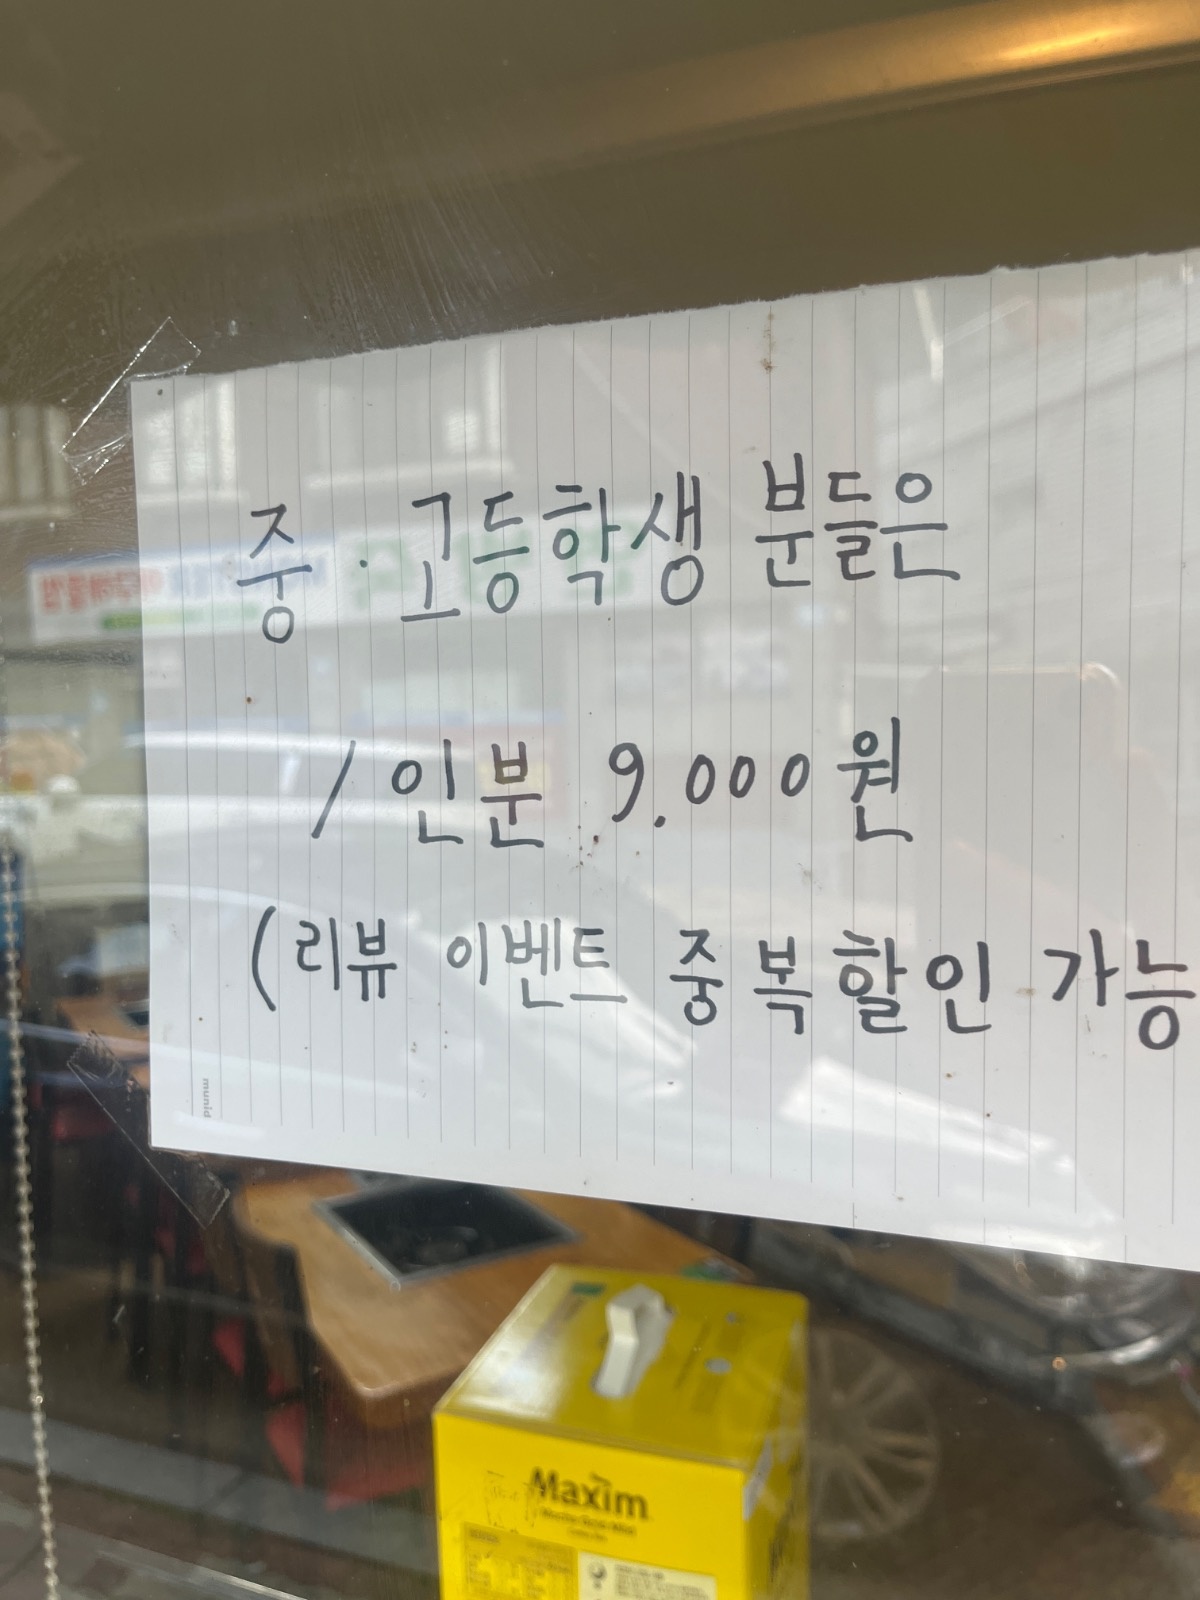 중·고등학생 분들은
1인분 9.000원
(리뷰 이벤트 중복할인 가능
munid
Maxim